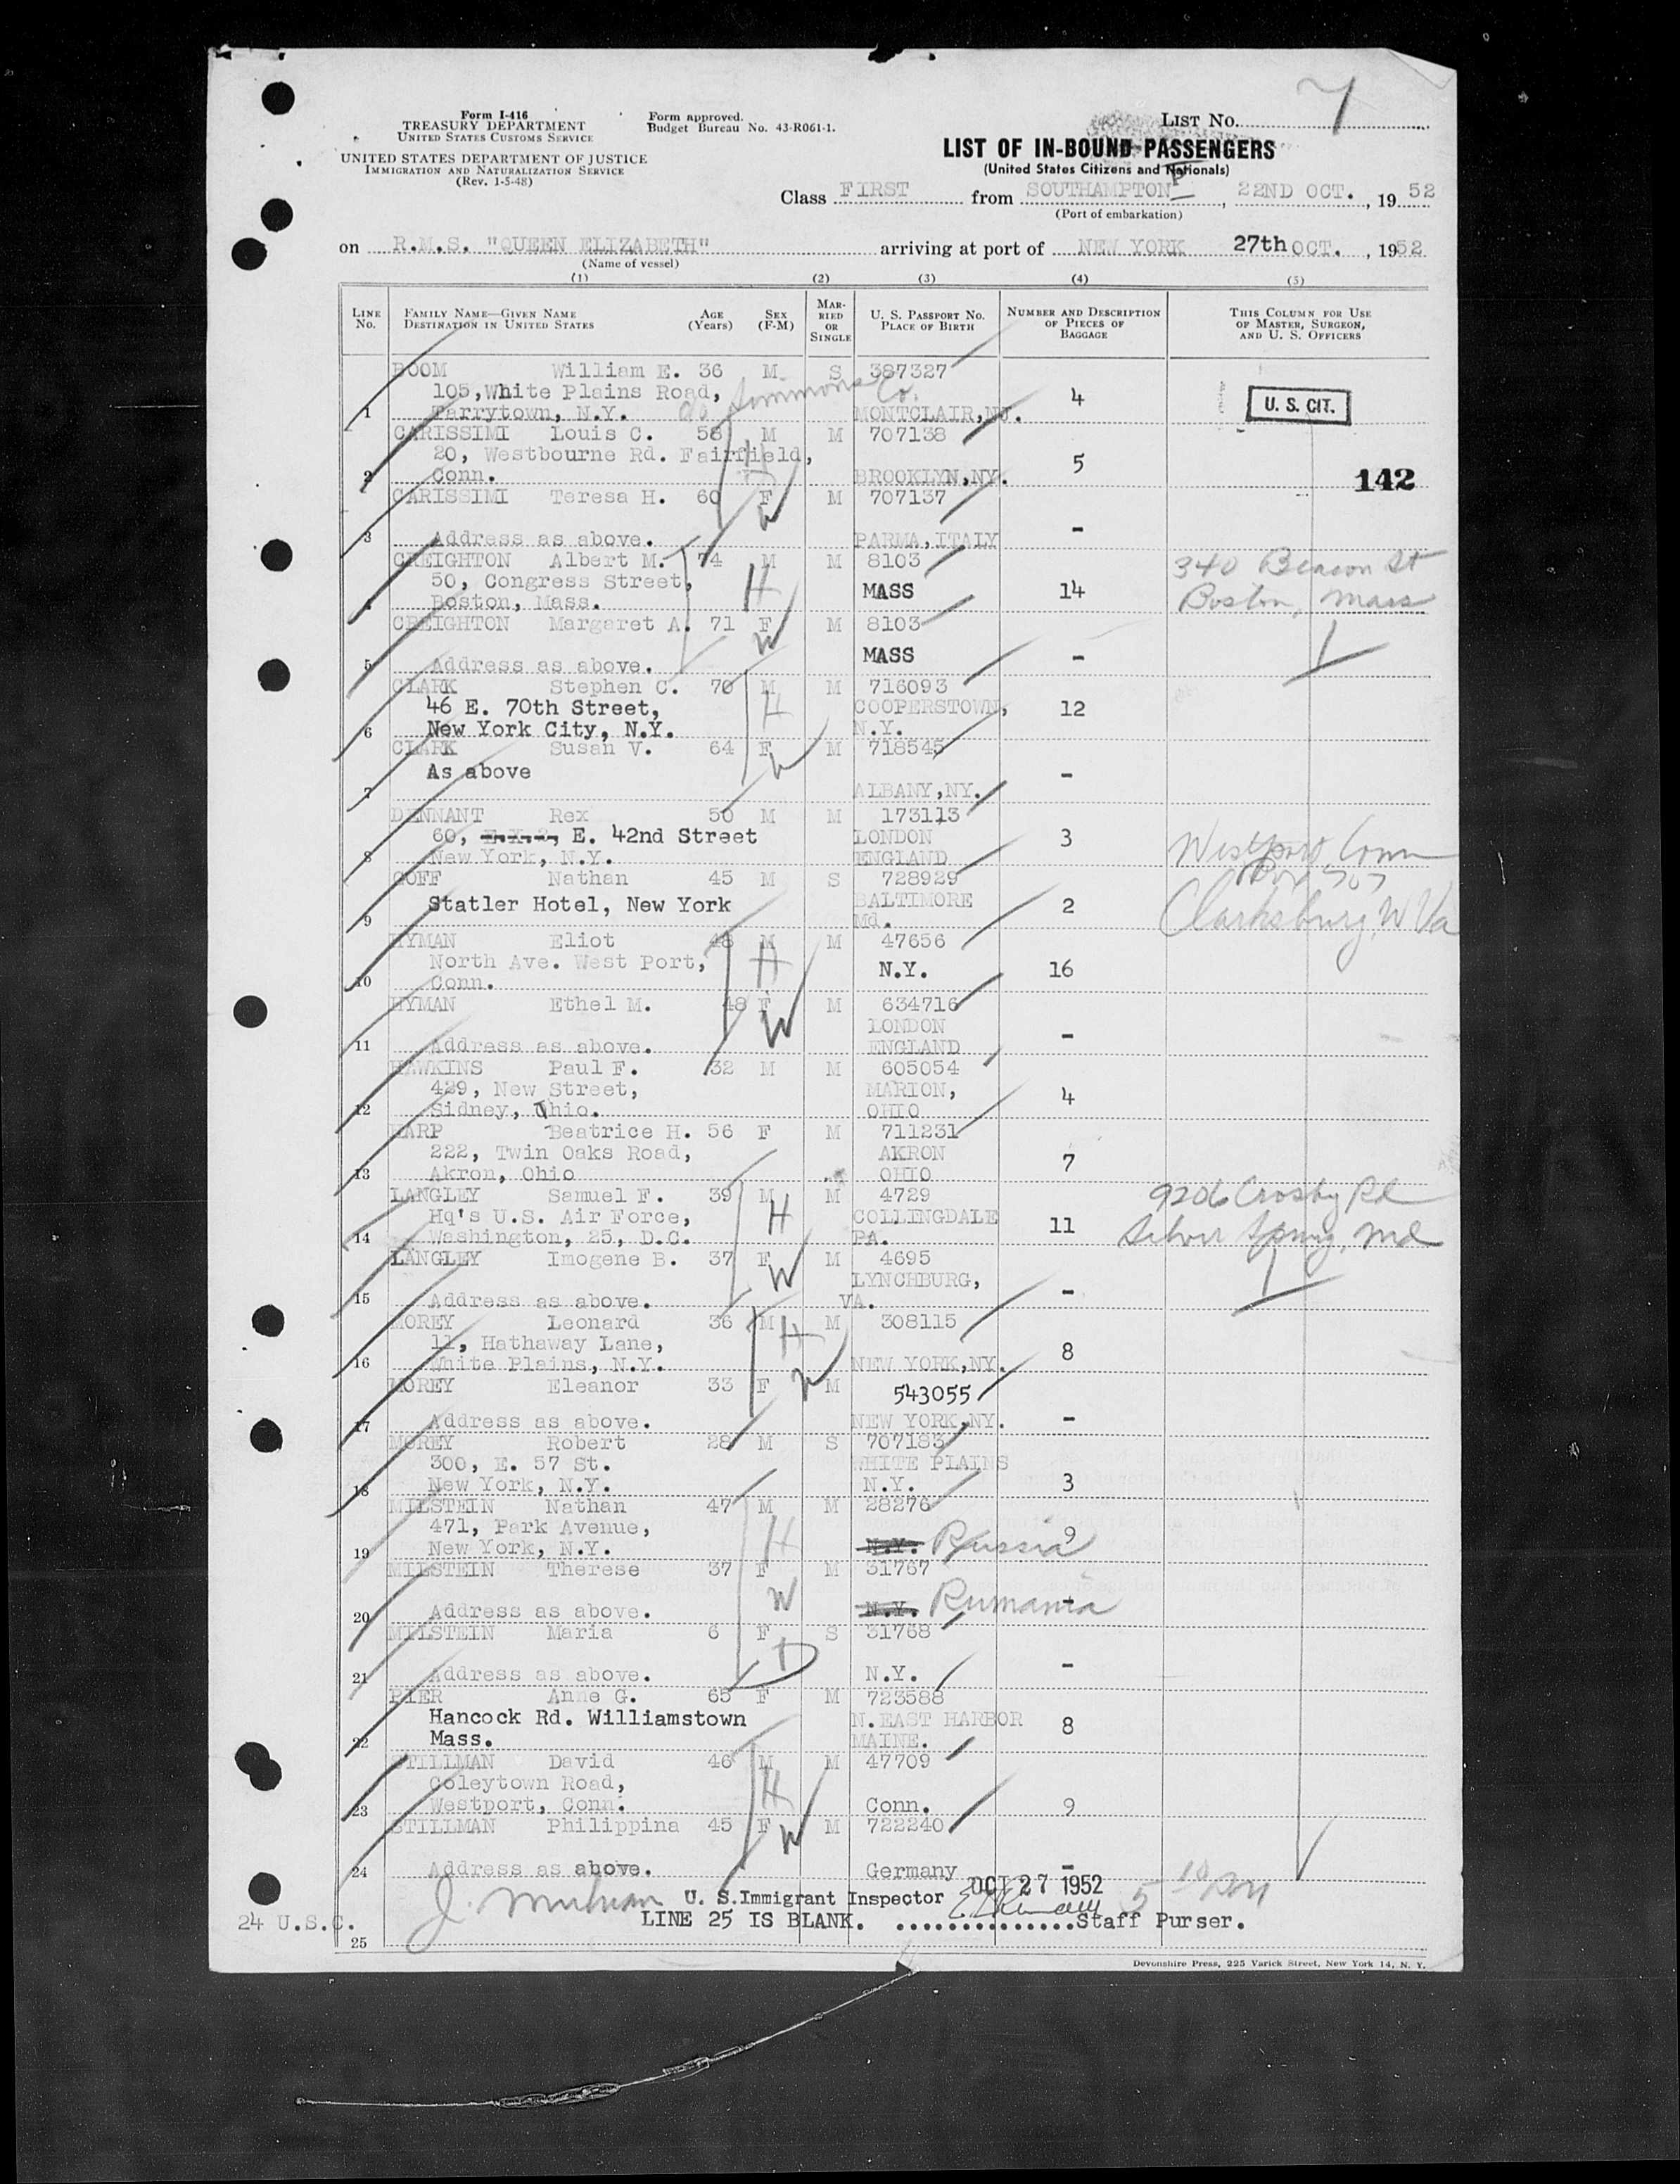 7
Form I-416
TREASURY DEPARTMENT
UNITED STATES CUSTOMS SERVICE
Form approved.
Budget Bureau No. 43-R061-1.
LIST NO.
UNITED STATES DEPARTMENT OF JUSTICE
IMMIGRATION AND NATURALIZATION SERVICE
(Rev. 1-5-48)
LIST OF IN-BOUND PASSENGERS
(United States Citizens and Nationals)
Class FIRST from SOUTHAMPTON, 22ND OCT., 1952
(Port of embarkation)
on R.M.S. "QUEEN ELIZABETH" arriving at port of NEW YORK 27th OCT., 1952
(Name of vessel)
(1) (2) (3) (4) (5)
LINE NO. FAMILY NAME—GIVEN NAME DESTINATION IN UNITED STATES AGE (Years) SEX (F-M) MARRIED OR SINGLE U. S. PASSPORT NO. PLACE OF BIRTH NUMBER AND DESCRIPTION OF PIECES OF BAGGAGE THIS COLUMN FOR USE OF MASTER, SURGEON, AND U. S. OFFICERS
BOOM William E. 36 M S 387327
105,White Plains Road, c/o Simmons Co. 4 U. S. CIT.
1 Tarrytown, N.Y. MONTCLAIR,NJ.
CARISSIMI Louis C. 58 M M 707138
20, Westbourne Rd. Fairfield, H 5
2 Conn. BROOKLYN,NY. 142
CARISSIMI Teresa H. 60 F M 707137
W
3 Address as above. PARMA,ITALY -
CREIGHTON Albert M. 74 M M 8103 340 Beacon St
50, Congress Street, H MASS 14 Boston, Mass
4 Boston, Mass.
CREIGHTON Margaret A. 71 F M 8103
W MASS -
5 Address as above.
CLARK Stephen C. 70 M M 716093
46 E. 70th Street, H COOPERSTOWN, 12
6 New York City, N.Y. N.Y.
CLARK Susan V. 64 F M 718545
As above W -
7 ALBANY,NY.
DENNANT Rex 50 M M 173113
60, E. 42nd Street LONDON 3 Westport, Conn
8 New York, N.Y. ENGLAND Box 707
GOFF Nathan 45 M S 728929
Statler Hotel, New York BALTIMORE 2 Clarksburg, W Va
9 Md.
HYMAN Eliot 48 M M 47656
North Ave. West Port, H N.Y. 16
10 Conn.
HYMAN Ethel M. 48 F M 634716
W LONDON -
11 Address as above. ENGLAND
HAWKINS Paul F. 32 M M 605054
429, New Street, MARION, 4
12 Sidney, Ohio. OHIO
HARP Beatrice H. 56 F M 711231
222, Twin Oaks Road, AKRON 7
13 Akron, Ohio OHIO
LANGLEY Samuel F. 39 M M 4729 9206 Crosby Rd
Hq's U.S. Air Force, H COLLINGDALE 11 Silver Spring, Md
14 Washington, 25, D.C. PA.
LANGLEY Imogene B. 37 F M 4695
W LYNCHBURG, -
15 Address as above. VA.
MOREY Leonard 36 M M 308115
11, Hathaway Lane, H 8
16 White Plains, N.Y. NEW YORK,NY.
MOREY Eleanor 33 F W M 543055
17 Address as above. NEW YORK,NY. -
MOREY Robert 28 M S 707183
300, E. 57 St. WHITE PLAINS 3
18 New York, N.Y. N.Y.
MILSTEIN Nathan 47 M M 28276
471, Park Avenue, H 9
19 New York, N.Y. N.Y. Russia
MILSTEIN Therese 37 F M 31767
W
20 Address as above. N.Y. Rumania -
MILSTEIN Maria 6 F S 31768
D
21 Address as above. N.Y. -
PIER Anne G. 65 F M 723588
Hancock Rd. Williamstown N.EAST HARBOR 8
22 Mass. MAINE.
STILLMAN David 46 M M 47709
Coleytown Road, H
23 Westport, Conn. Conn. 9
STILLMAN Philippina 45 F M 722240
W
24 Address as above. Germany -
OCT 27 1952
U. S.Immigrant Inspector
24 U.S.C. LINE 25 IS BLANK. ...............Staff Purser.
25
Devonshire Press, 225 Varick Street, New York 14, N. Y.